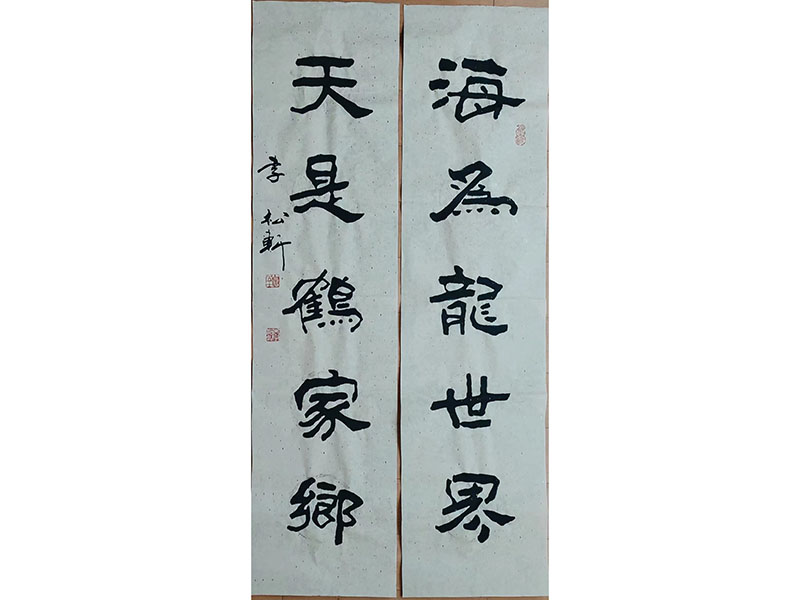 海為龍世界
天是鶴家鄉
李松軒